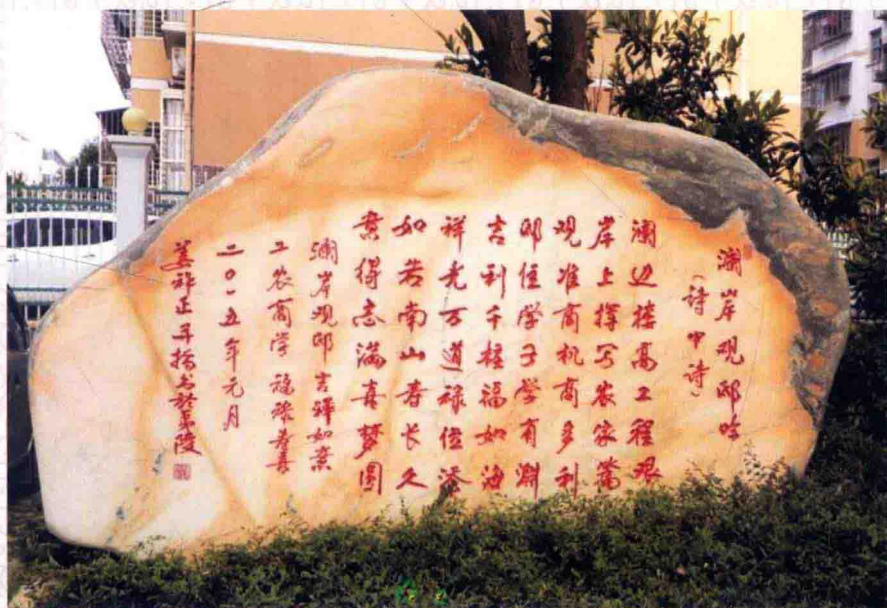 澜岸观邸吟
（诗中诗）
澜边楼高工程艰
岸上挥写农家篇
观准商机商多利
邸住学子学有渊
吉利千桩福如海
祥光万道禄位添
如若南山寿长久
意得志满喜梦圆
澜岸观邸吉祥如意
工农商学福禄寿喜
二〇一五年元月
姜祚正并撰书於夷陵